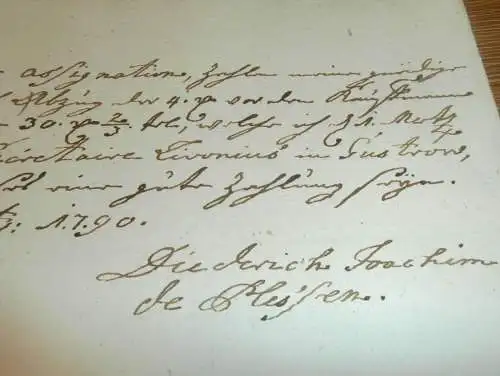 assignation, zahlen meine gnädige
Abzug der 4. vor den
30. 2/3. tel, welche ich d 1. Mertz
Secretaire Livonius in Güstrow,
eine gute Zahlung seyn.
1790.
Diederich Joachim
de Plessen.